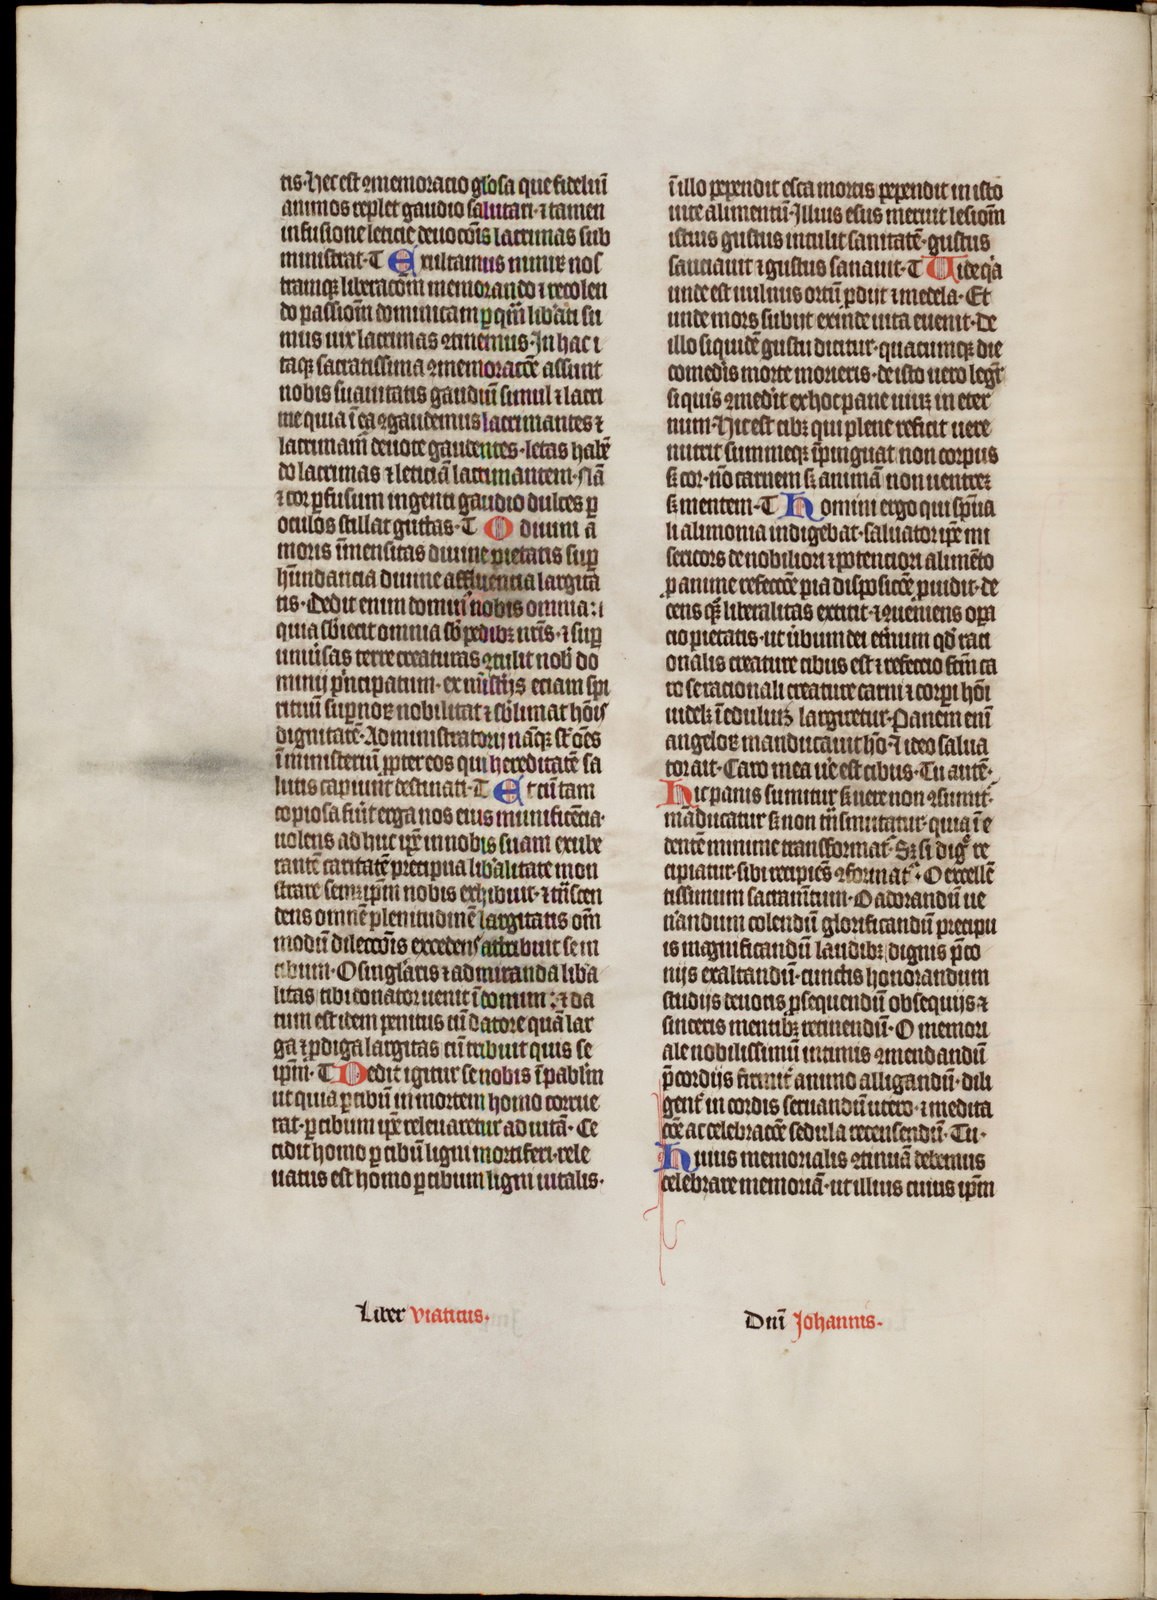 tis· Hec est ꝯmemoracio gl'osa que fideliū
animos replet gaudio salutari· ⁊ tamen
infusione leticie deuocōis lacrimas sub
ministrat· T Exultamus nimiꝝ nos
tramqꝫ liberacōm memorando ⁊ recolen
do passiom̄ dominicam ꝑ qm̄ liberati su
mus uix lacrimas ꝯtinemus· In hac i
taqꝫ sacratissima ꝯmemoracōe assunt
nobis suauitatis gaudiū simul ⁊ lacri
me quia ī ea ꝯgaudemus lacrimantes ⁊
lacrimam̄ deuote gaudentes· letas habē
do lacrimas ⁊ leticiā lacrimantem· Nā
⁊ cor ꝑfusum ingenti gaudio dulces ꝑ
oculos stillat guttas· T O diuini a
moris īmensitas diuine pietatis suꝑ
hūndancia diuine affluencia largita
tis· Dedit enim dominꝰ nobis omnia: ⁊
quia sb̄iecit omnia sb̄ pedibꝫ nr̄is· ⁊ suꝑ
uniu̓sas terre creaturas ꝯtulit nob̄ do
minij pͥncipatum· ex mīstijs eciam spi
rituū suꝑnoꝝ nobilitat ⁊ sb̄limat hōis
dignitatē· Administratorij nāqꝫ st̄ oēs
ī ministeriū ꝓpter eos qui hereditatē sa
lutis capiunt destinati· T Et cū tam
copiosa fūt erga nos eius munificēcia·
uolens ad huc ip̄e in nobis suam exube
rantē caritatē precipua lib̓alitate mon
strare semꝫ ip̄m nobis exhibuit· ⁊ tn̄scen
dens omnē plenitudinē largitatis om̄
modū dileccōis excedens attribuit se in
cibum· O singl'aris ⁊ admiranda lib̓a
litas ubi donator uenit ī donum: ⁊ da
tum est idem penitus cū datore quā lar
ga ⁊ ꝓdiga largitas cū tribuit quis se
ip̄m· T Dedit igitur se nobis ī pabl'm
ut quia ꝑ cibū in mortem homo corrue
rat· ꝑ cibum ip̄e releuaretur ad uitā· Ce
cidit homo ꝑ cibū ligni mortiferi· rele
uatus est homo ꝑ cibum ligni uitalis·
ī illo pependit esca mortis pependit in isto
uite alimentū· Illius esus meruit lesiom̄
istius gustus intulit sanitatē· gustus
sauciauit ⁊ gustus sanauit· T Vide qͥa
unde est uulnus ortū ꝓdiit ⁊ medela· Et
unde mors subiit exinde uita euenit· De
illo siquidē gustu dicitur· quacumqꝫ die
comedīs morte morieris· de isto uero legīt
si quis ꝯmedīt ex hoc pane uiuꝫ in eter
num· Hic est cibꝫ qui plene reficit uere
nutrit summeqꝫ īpinguat non corpus
sꝫ cor· nō carnem sꝫ animā non uentrēꝫ
sꝫ mentem· T Homini ergo qui sp̄ua
li alimonia indigebat· saluator ip̄e mi
sericors de nobiliori ⁊ potenciori alimēto
ꝓ anime refeccōe pia disposicōe ꝓuidit· de
cens qꝫ liberalitas extitit· ⁊ ꝯueniens opa
cio pietatis· ut u̓bum dei et̓num qd̄ raci
onalis creature cibus est ⁊ refeccio fcm̄ ca
ro se racionali creature carni ⁊ corꝑi hōi
uidelꝫ ī eduliuꝫ largiretur· Panem enī
angeloꝝ manducauit hō· ⁊ ideo salua
tor ait· Caro mea ue̓ est cibus· Tu autē·
Hic panis sumitur sꝫ uere non ꝯsumīt·
māducatur sꝫ non tn̄smutatur· quia ī e
dentē minime transformat̓· Sꝫ si digͤ re
cipiatur· sibi recipiēs ꝯformat̓· O excellē
tissimum sacramentum· O adorandū ue
nerandum colendū glorificandū precipu
is magnificandū laudibꝫ dignis p̄co
nijs exaltandū· cunctis honorandum
studijs deuotis ꝓsequendū obsequijs ⁊
sinceris mentibꝫ retinendū· O memori
ale nobilissimū intimis ꝯmendandū
p̄cordijs firmit̓ animo alligandū· dili
gent̓ in cordis seruandū utero· ⁊ medita
cōe ac celebracōe sedula recensendū· Tu·
Huius memorialis ꝯtinuā debemus
celebrare memoriā· ut illius cuius ip̄m
Liber viaticus·
Dnī Johannis·